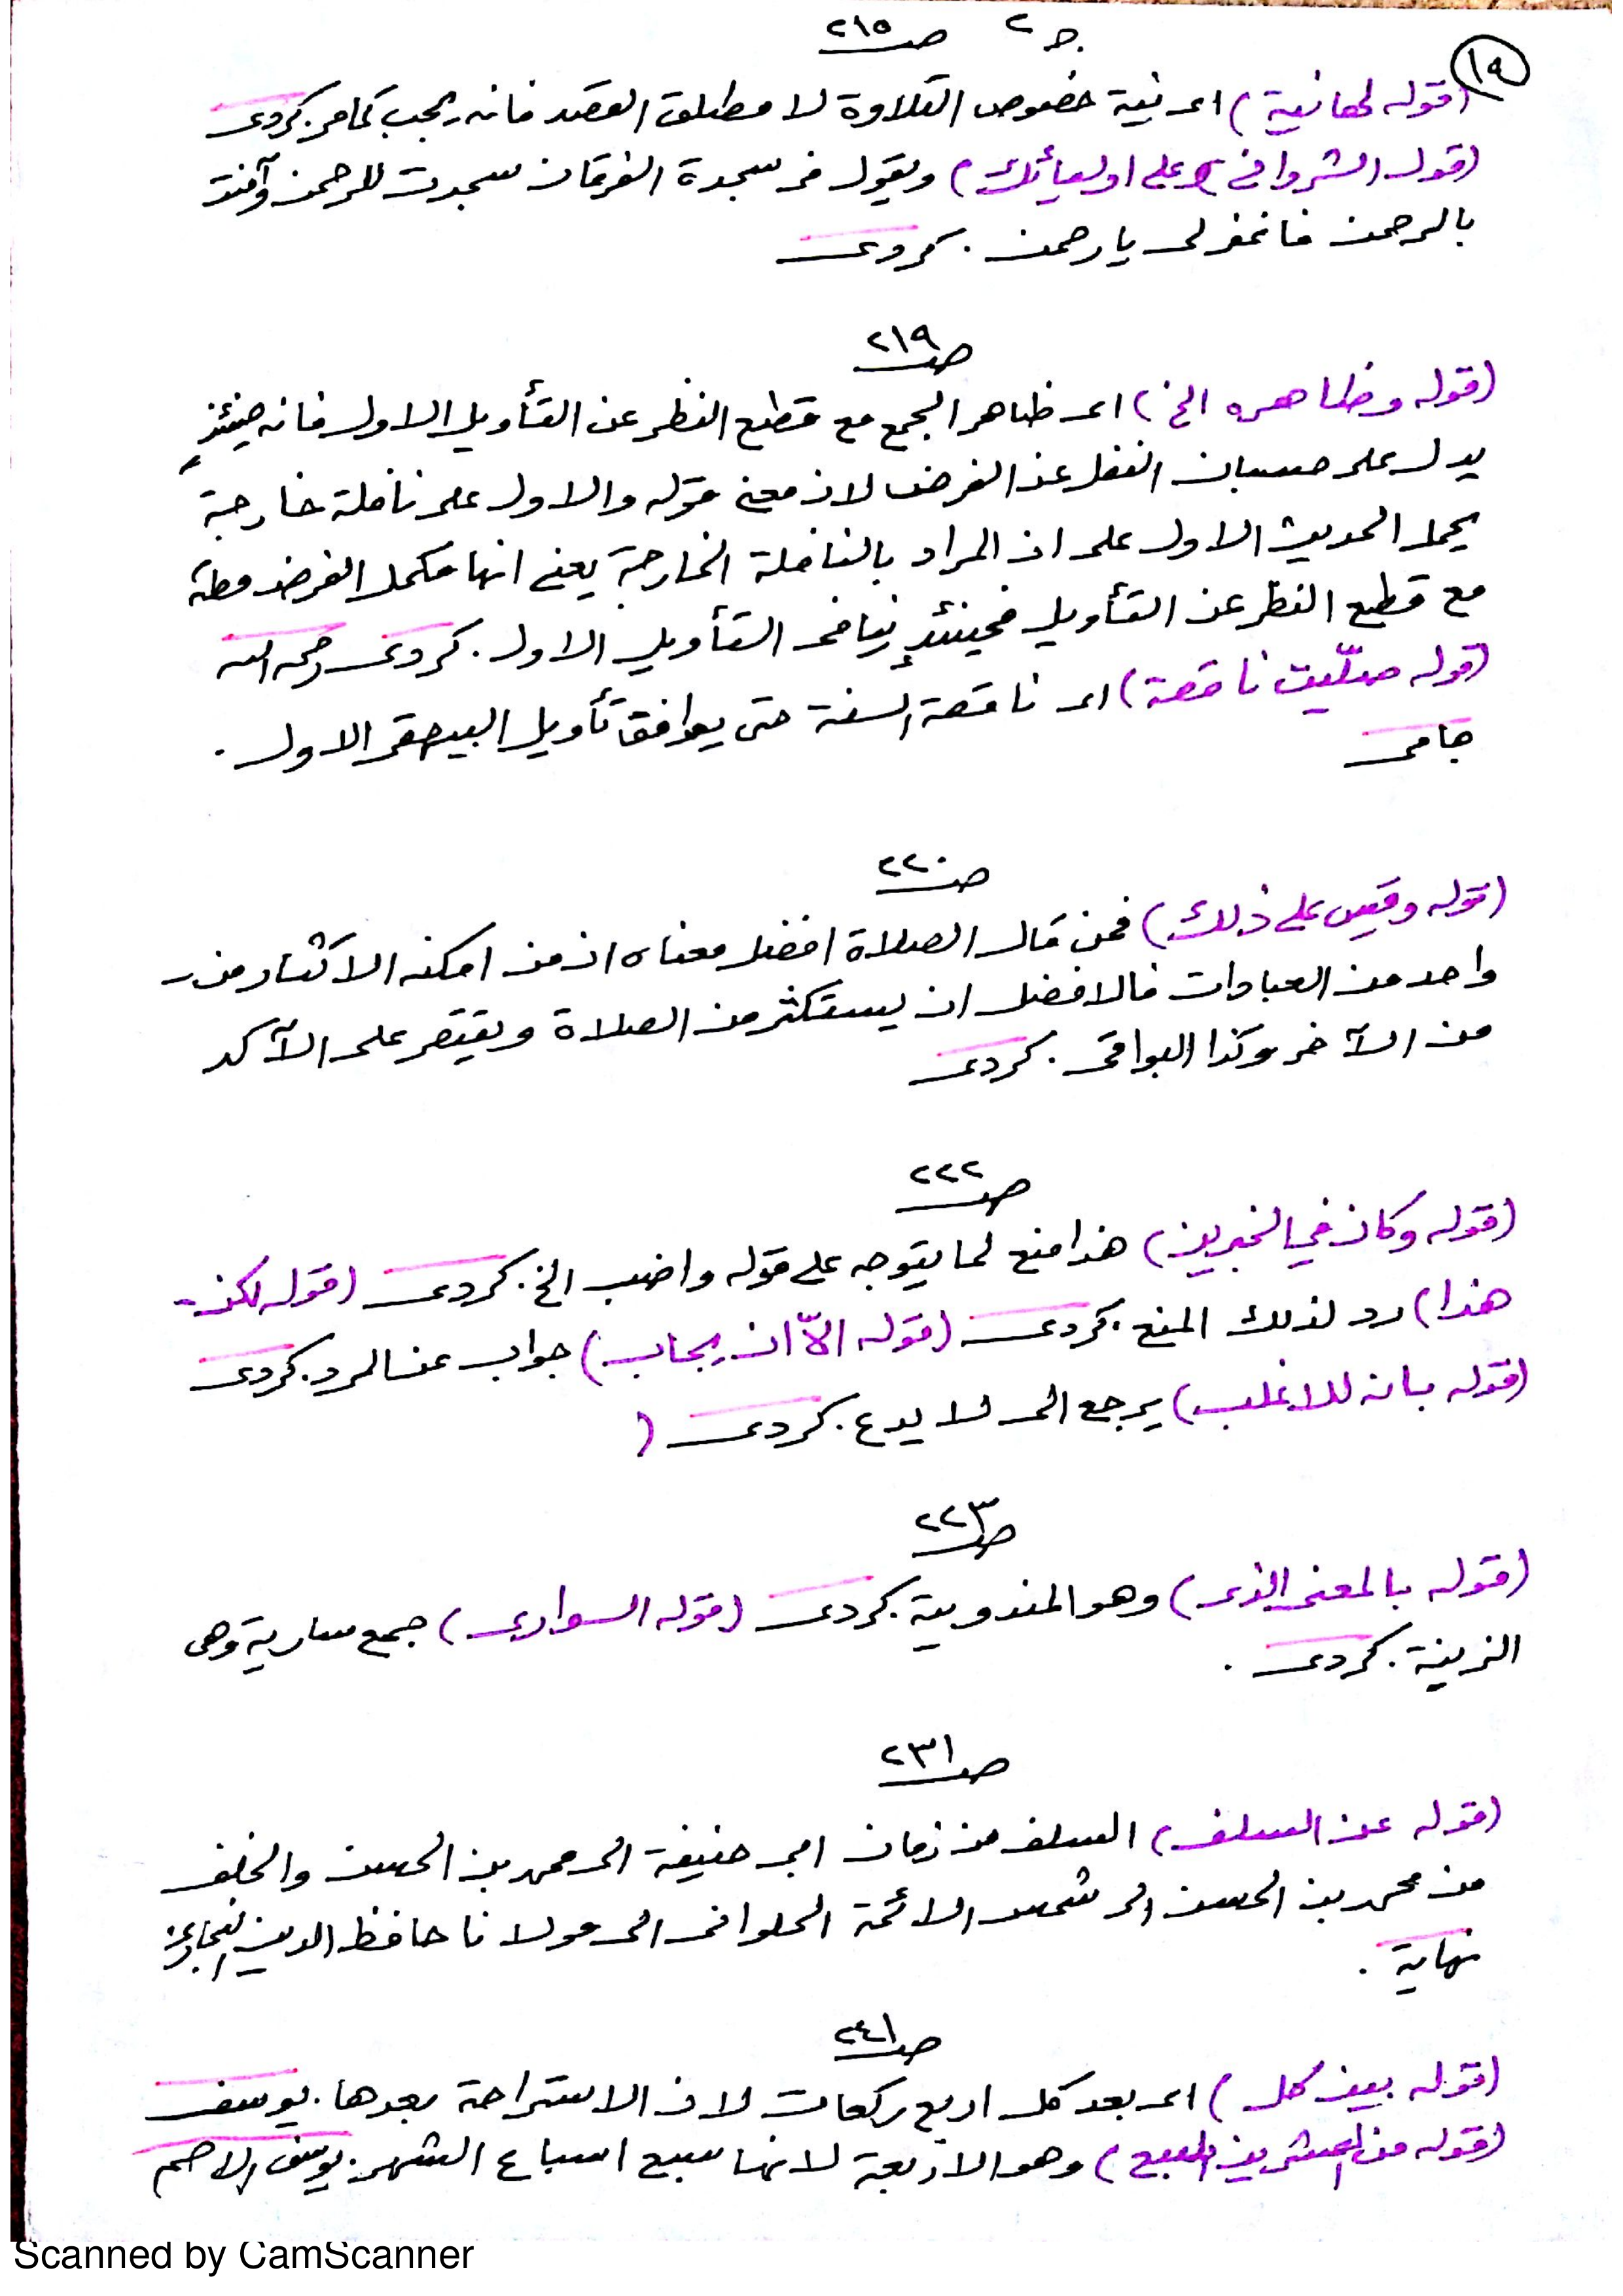 ج ٢ صـ ٢١٥
١٩
(قوله لحانية) اى نية خصوص التلاوة لا مطلق القصد فانه يجب كما مر. كردى
(قول الشروانى وعلى اوليائك) ويقول فى سجدة الفرقان سجدت للرحمن وآمنت
بالرحمن فاغفر لى يا رحمن . كردى
صـ ٢١٩
(قوله وظاهره الخ) اى ظاهر الجمع مع قطع النظر عن التأويل الاول فانه حينئذٍ
يدل على حسبان النفل عن الفرض لان معنى قوله والاول على نافلة خارجة
يحمل الحديث الاول على ان المراد بالنافلة الخارجة يعنى انها مكمل الفرض
مع قطع النظر عن التأويل فحينئذٍ ينافى التأويل الاول . كردى رحمه الله
(قوله صلّيت ناقصة) اى ناقصة السنة حتى يوافق تأويل البيهقى الاول .
جامى
صـ ٢٢٠
(قوله وقيس على ذلك) فمن قال الصلاة افضل معناه ان من امكنه الاكثار من
واحد من العبادات فالافضل ان يستكثر من الصلاة ويقتصر على الآكد
من الآخر وكذا البواقى . كردى
صـ ٢٢٢
(قوله وكان في الخبرين) هذا منع لما يتوجه على قوله واضب الخ . كردى (قوله لكن
هذا) رد لذلك المنع . كردى (قوله الاّ ان يجاب) جواب عن الرد . كردى
(قوله بان للاغلب) يرجع الى لا يدع . كردى (
صـ ٢٢٣
(قوله بالمعنى الذى) وهو المندوبية . كردى (قوله السوارى) جمع سارية وهى
الزينة . كردى .
صـ ٢٣١
(قوله عن السلف) السلف من زمان ابى حنيفة الى محمد بن الحسن والخلف
من محمد بن الحسن الى شمس الائمة الحلوانى الى مولانا حافظ الدين البخارى
نهاية .
صـ ٢٤١
(قوله بين كل) اى بعد كل اربع ركعات لان الاستراحة بعدها . يوسف
(قوله من العشرين السبع) وهو الاربعة لانها سبع اسباع الشهر . يوسف الاصم
Scanned by CamScanner